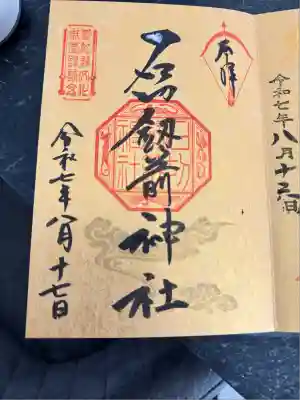 令和七年八月十六日
奉拝
石切劔箭神社
令和七年八月十七日